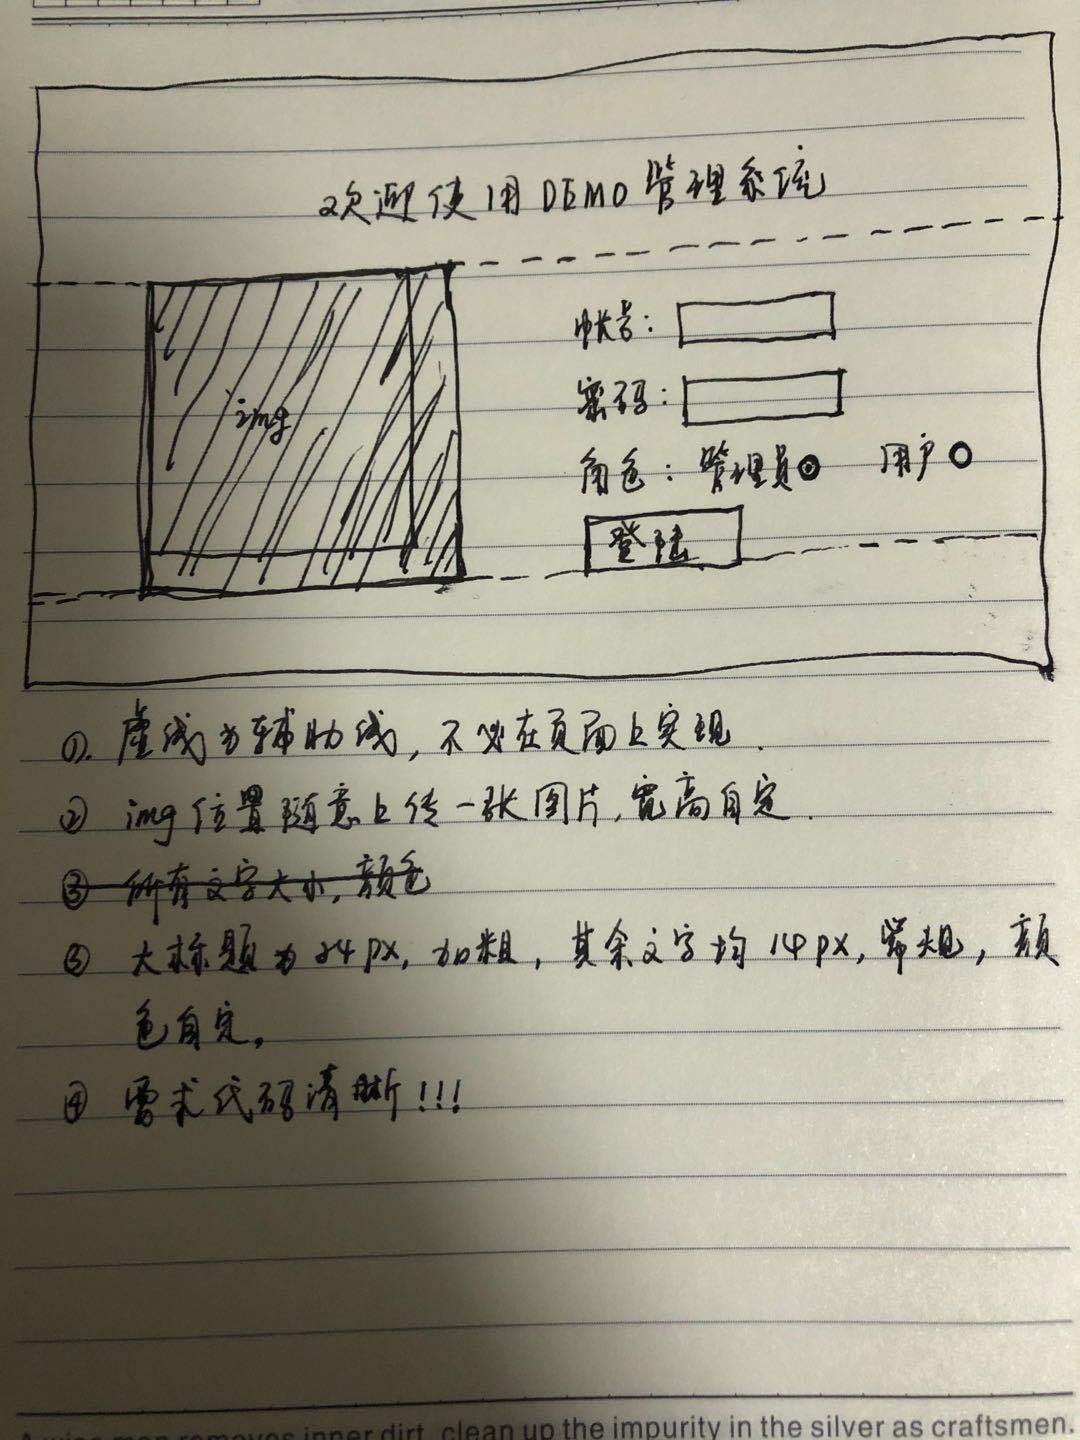 欢迎使用DEMO管理系统
帐号:
img
密码:
角色: 管理员 用户
登陆
①. 虚线为辅助线, 不必在页面上实现.
② img位置随意上传一张图片, 宽高自定.
③ 所有文字大小, 颜色
③ 大标题为24px, 加粗, 其余文字均14px, 常规, 颜
色自定。
④ 要求代码清晰!!!
A wise man removes inner dirt, clean up the impurity in the silver as craftsmen.